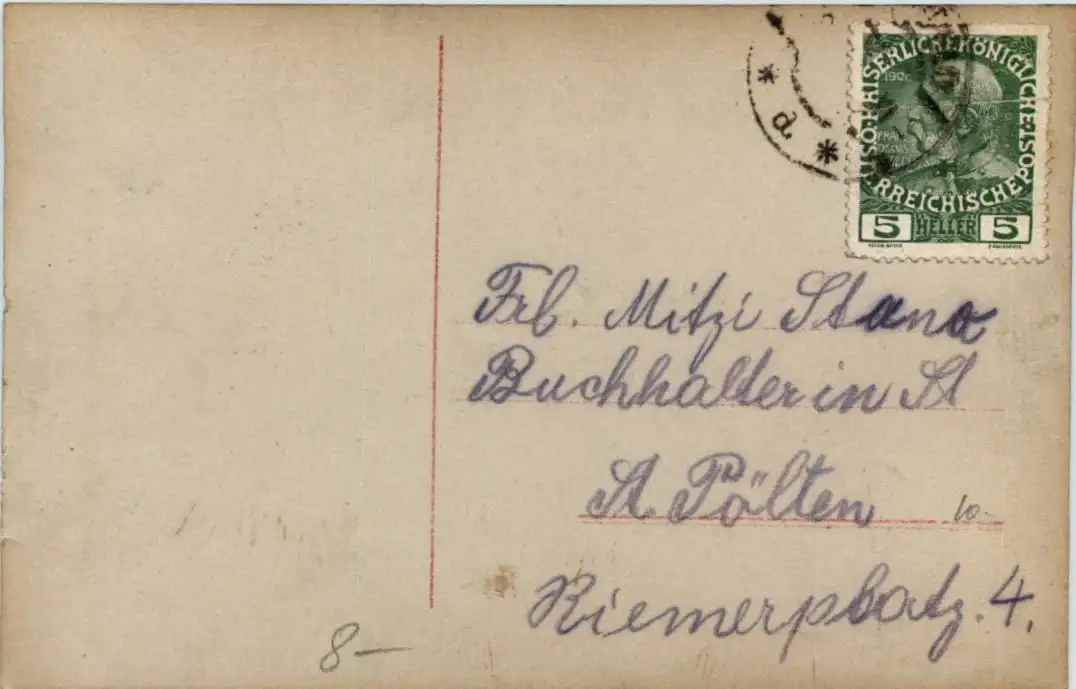 KAISERLICHE KÖNIGLICHE
ÖSTERREICHISCHE POST
5 HELLER 5
Frl. Mitzi Stano
Buchhalterin St
St. Pölten
10-
Riemerplatz. 4.
8 —